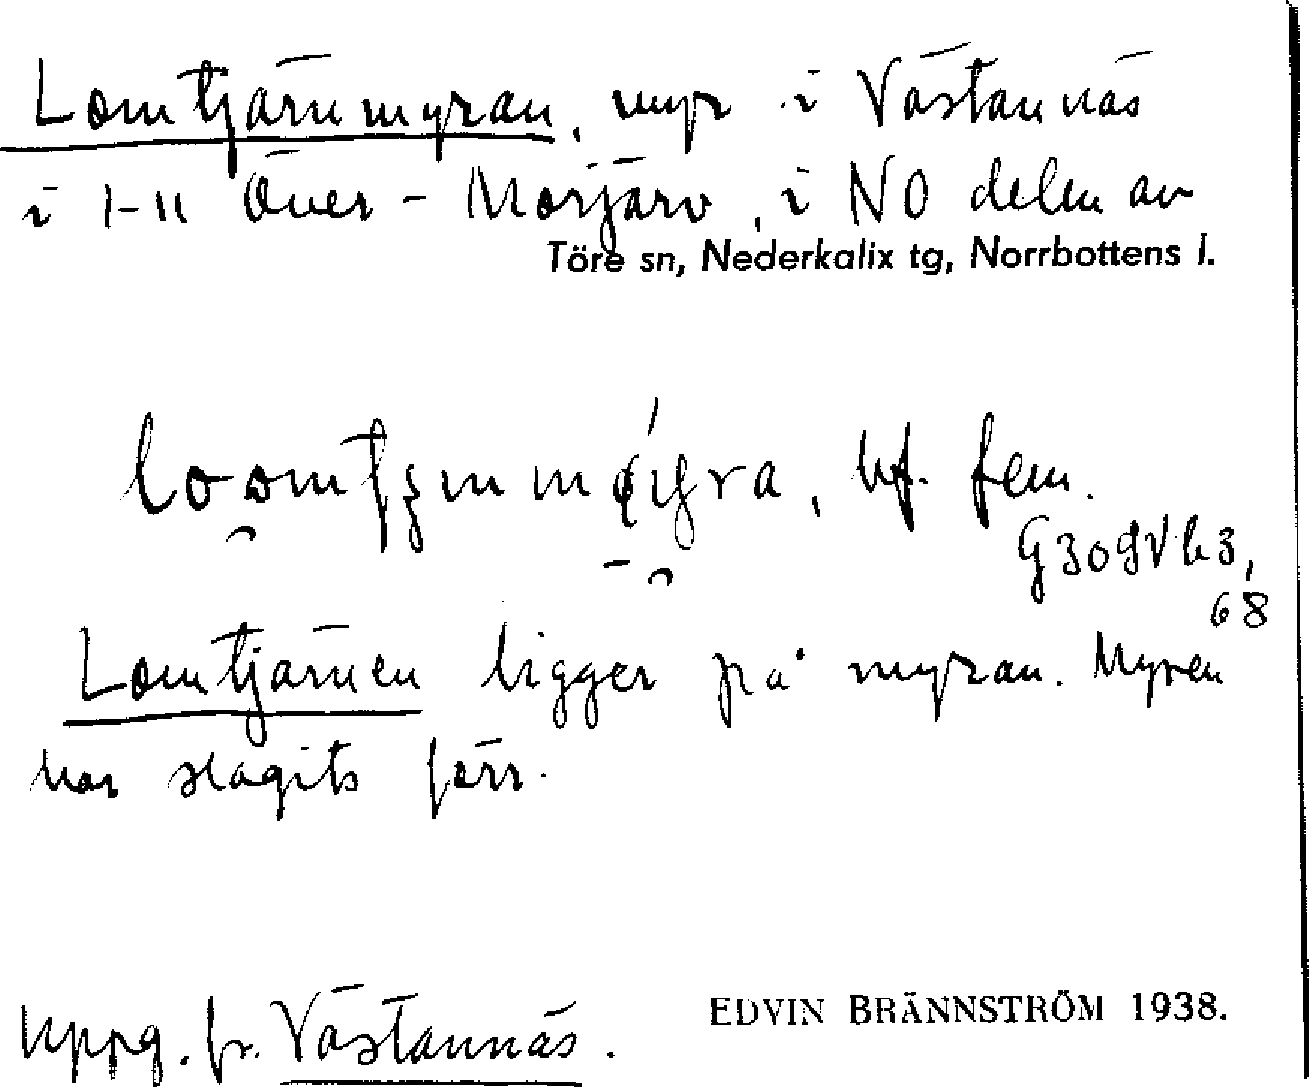 Lomtjärnmyran, myr i Västannäs
i 1-11 Över-Morjärv, i NO delen av
Töre sn, Nederkalix tg, Norrbottens l.
bf. fem.
G309Vh3,
68
Lomtjärnen ligger på myran. Myren
har slagits förr.
Uppg. fr. Västannäs.
EDVIN BRÄNNSTRÖM 1938.